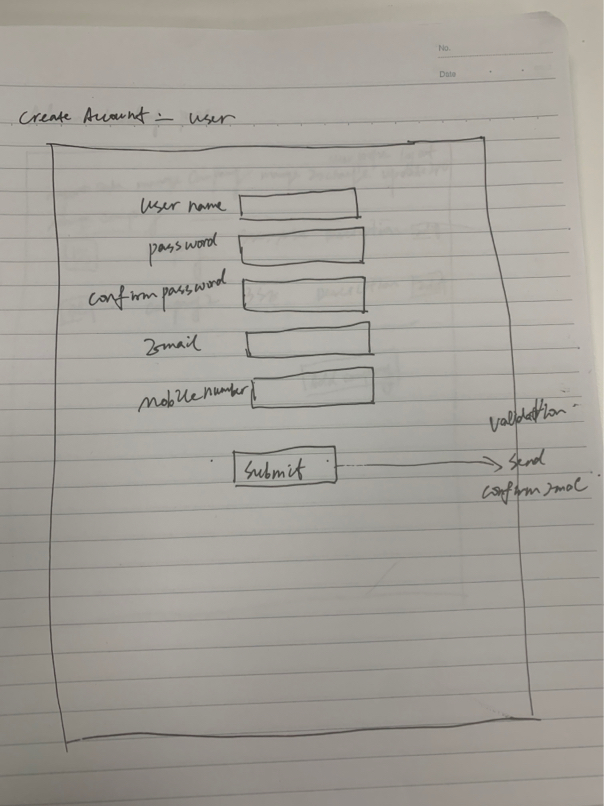 No.
Date
Create Account :- User
User name
password
confirm password
Email
Mobile number
Submit
validation
send
confirm